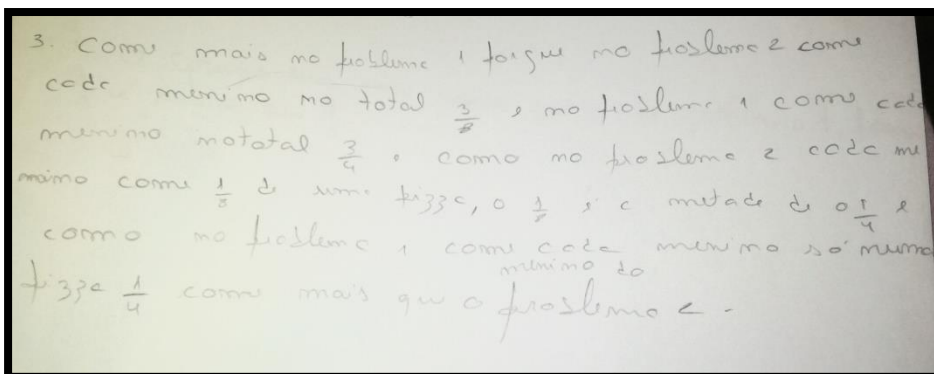 3. Come mais no probleme 1 porque no probleme 2 come
cada menino no total 3/8 e no probleme 1 come cada
menino no total 3/4 e como no probleme 2 cada me
nimo come 1/8 de uma pizza, o 1/8 é a metade de o 1/4 e
como no probleme 1 come cada menino só numa
pizza 1/4 come mais que o menino do probleme 2.